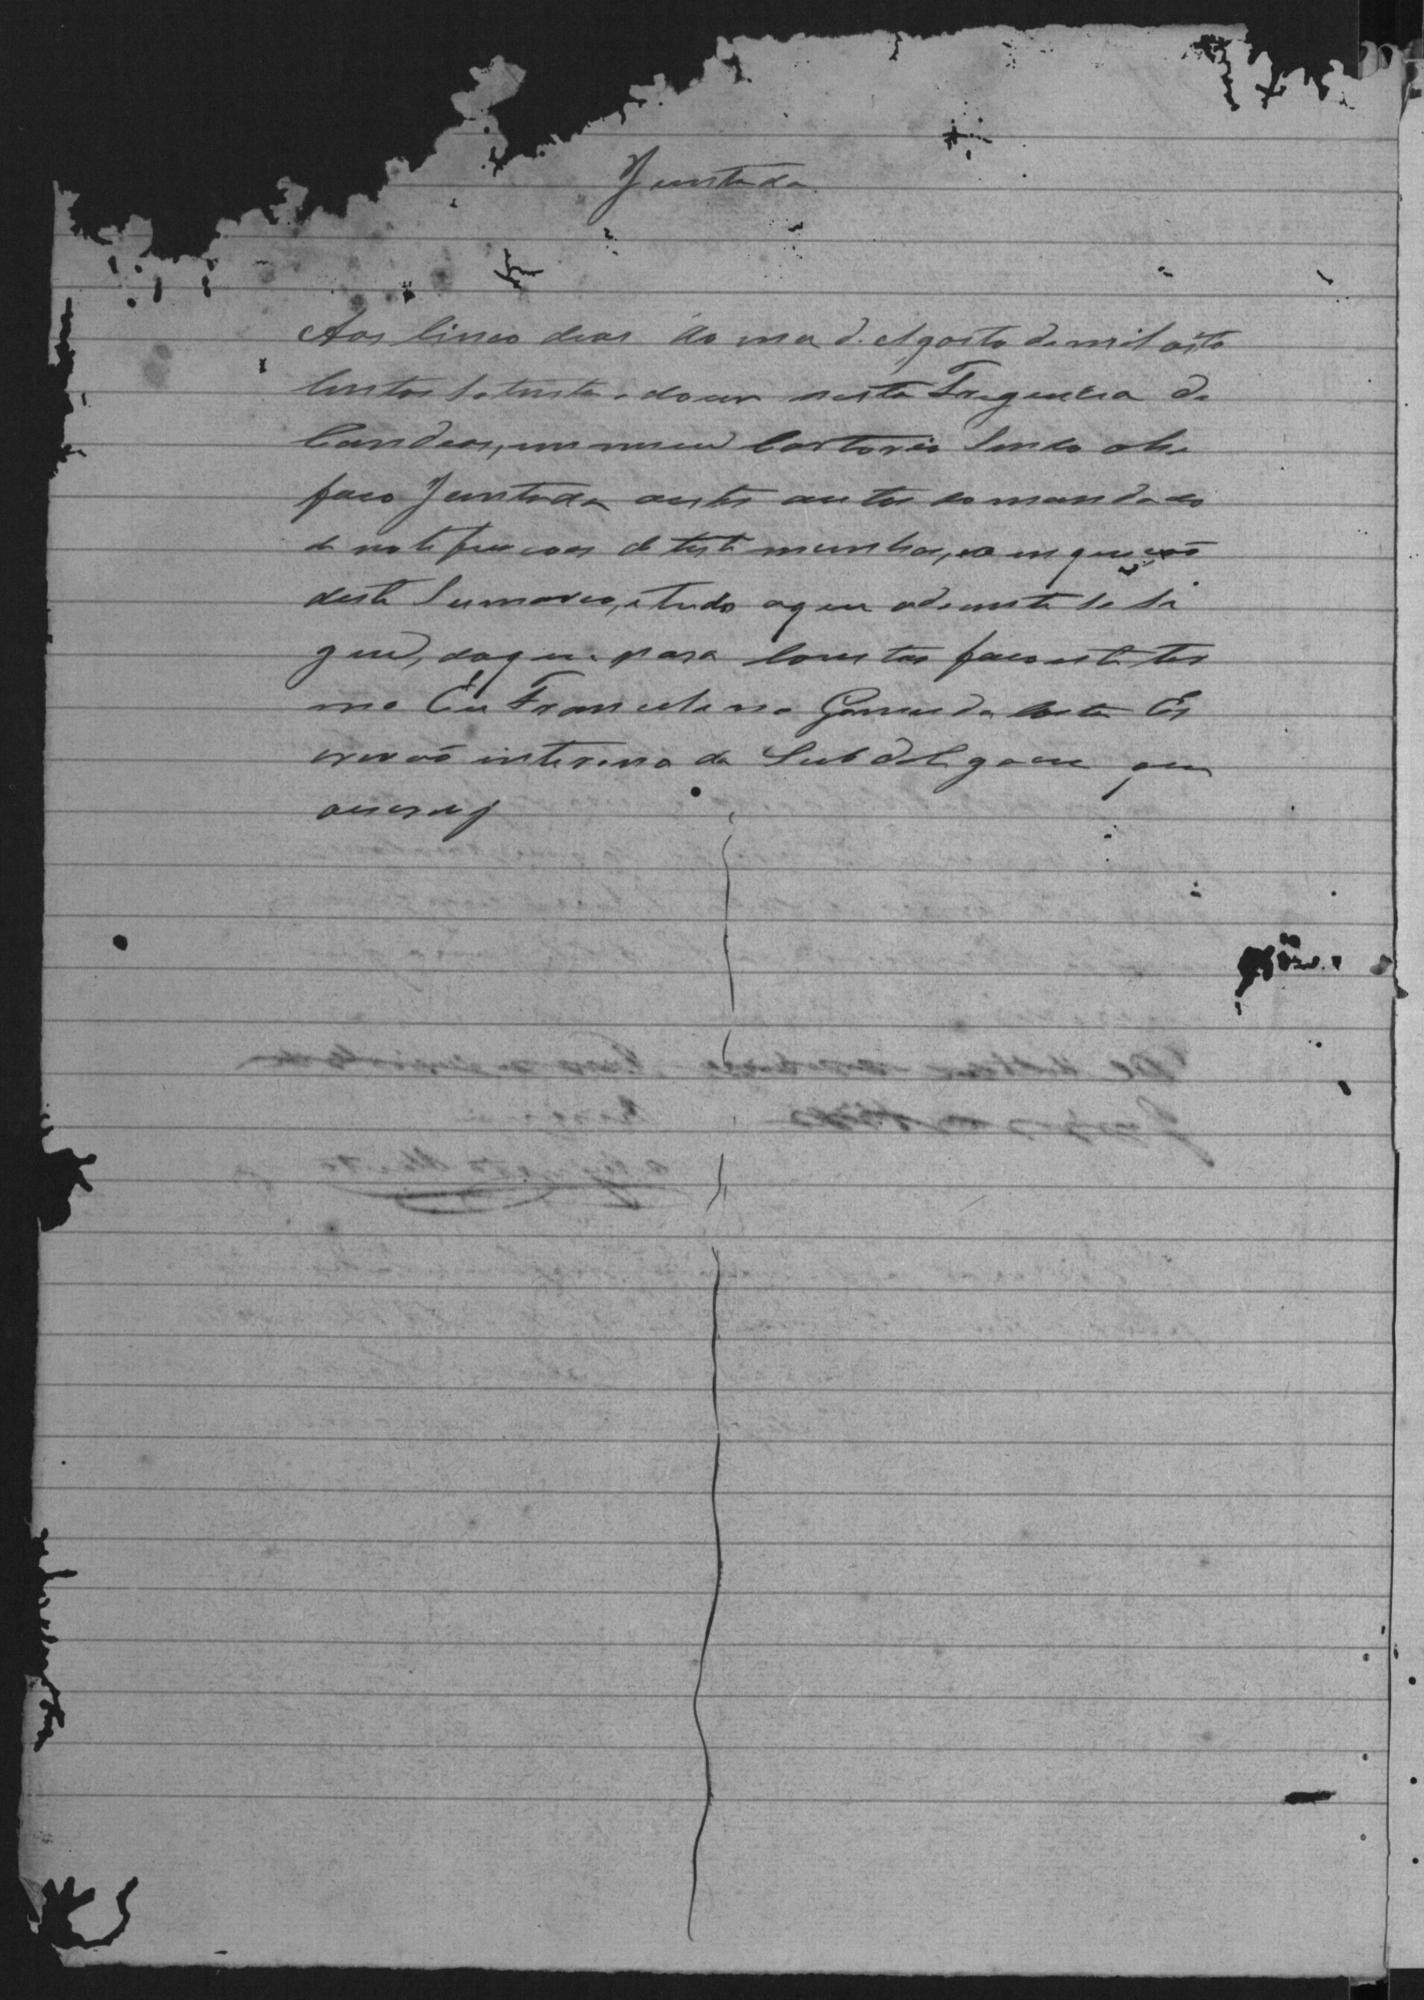 Juntada
Aos cinco dias do mez de Agosto de mil oito
centos setenta e douz nesta Freguezia de
Candeas, em meu Cartorio sendo ahi
faço Juntada aestes autos do mandado
de notificacoes de testemunhas, e
deste Sumario, e tudo aque adiante se se
gue, do que para constar faco este ter
mo Eu Francelino Gomes da Costa Es
crivaõ interino da Subdelegacia que
oescrevy